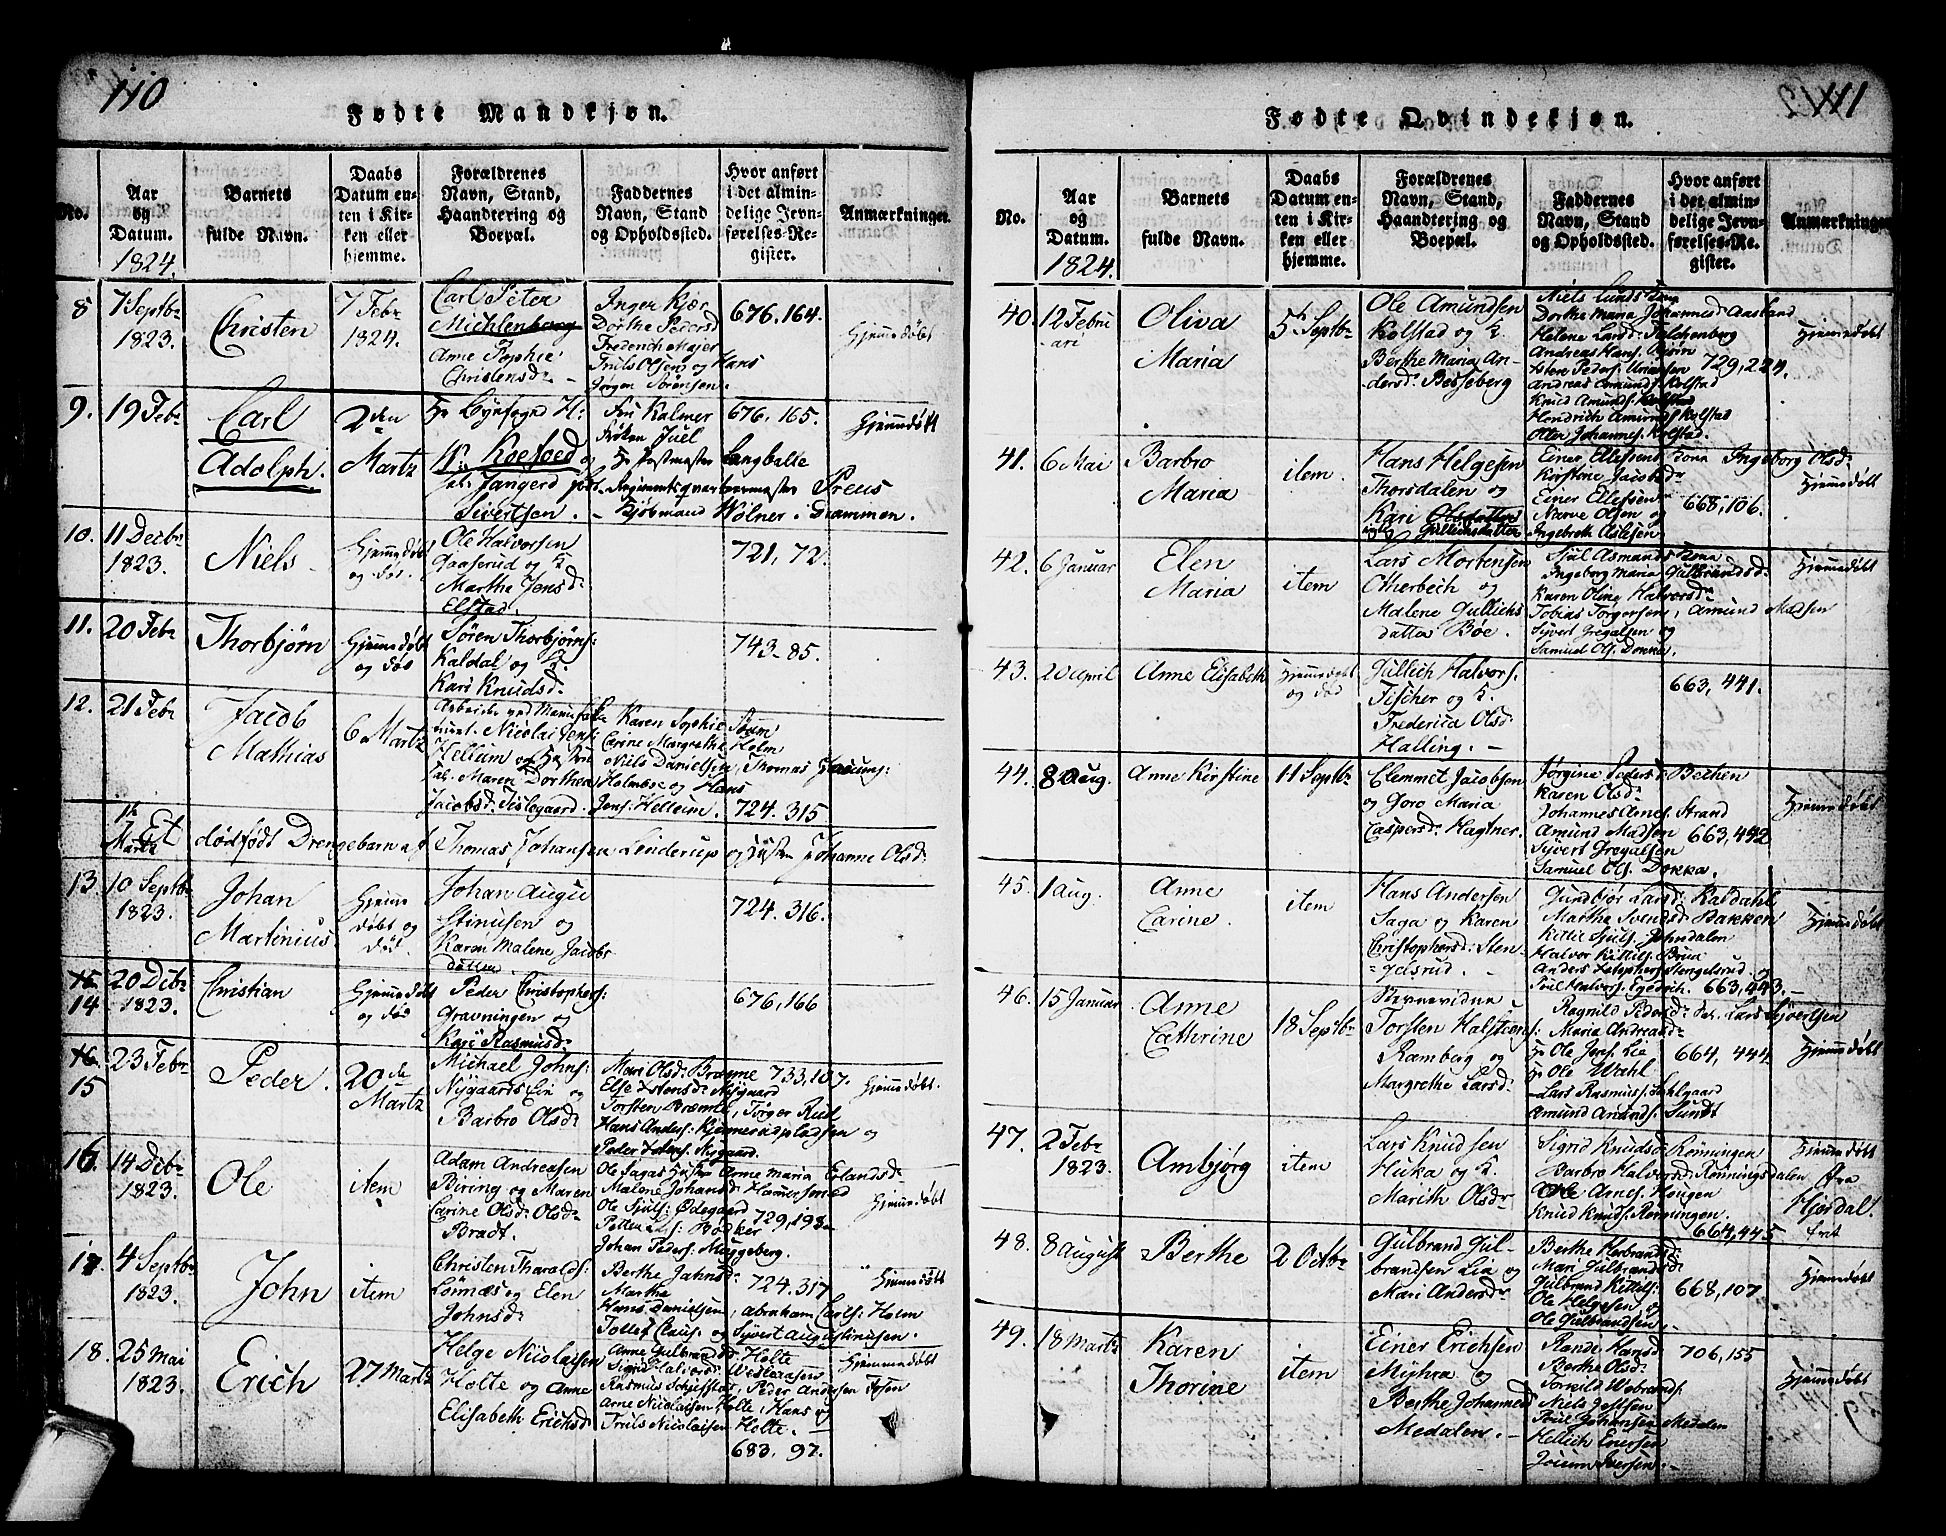 110
Fødte Mandkjøn.
No.
Aar og Datum.
Barnets fulde Navn.
Daabs Datum enten i Kirken eller hjemme.
Forældrenes Navn, Stand, Haandtering og Boepæl.
Faddernes Navn, Stand og Opholdssted.
Hvor anført i det almindelige Jevnførelses-Register.
Anmærkninger.
1824.
8 7 Septbr 1823.
Christen
7 Febr 1824.
Carl Peter
Michlenborg
Anne Sophie
Christensdr
Inger Kær
Dorthe Pedersd
Frederich Majer
Truls Olsen og Hans
Jørgen Sørensen.
676.164.
Hjemmedøbt
9. 19 Febr
Carl
Adolph.
2den Martz
Hr Byefogd H:
K: Koefoed og
Sivertsen.
Fru Kalmer
Frøken Juel
Hr Postmester Langballe
Regimentsqvarteermester Preus
Kjøbmand Wolner i Drammen.
676, 165.
Hjemmedøbt
10. 11 Decbr 1823.
Niels
Hjemmedøbt og død
Ole Halvorsen
Gaaserud og K
Marthe Jensd:
Elstad.
721, 72.
11. 20 Febr
Thorbjørn
Hjemmedøbt og død
Søren Thorbjørns:
Kaldal og K
Kari Knudsd.
743-85.
12. 21 Febr
Jacob
Mathias
6 Martz
Nicolai Jens:
Hellum og Hustru
Maren Dorthea
Jacobsd: Tislegaard.
Karen Sophie Strøm
Carine Margrethe Holm
Niels Danielsen, Thomas
Holmboe og Hans
Jens: Helleim.
724. 315
Martz Et dødfødt Drengebarn af Thomas Johansen Linderup og Hustru Johanne Olsd:
13. 10 Septbr 1823.
Johan
Martinius
Hjemmedøbt og død
Johan Augu
stinusen og
Karen Malene Jacobs
datter
724. 316.
14 20 Dcbr 1823.
Christian
Hjemmedøbt og død
Peder Christophers:
Gravningen og
Kari Rasmusd:
676, 166
15 23 Febr
Peder.
20de Martz
Michael Johns:
Nygaards Eie og
Barbro Olsd:
Mari Olsd: Bræmne
Else Jensd: Nygaard
Torsten Bræmle, Torger Rud
Hans Anders: Kjennerudpladsen og
Peder Nygaard.
733,107.
Hjemmedøbt.
16. 14 Dcbr 1823.
Ole
item
Adam Andreasen
Biring og Maren
Carine Olsd: Olsd:
Bradt.
Ole Sagas Hustru Anne Maria Erlandsd:
Malene Johansd: Hamersmed
Ole Sjuls: Ødegaard
Petter Bødker
Johan Peders: Muggeberg.
729,198
Hjemmedøbt
17 4 Septbr 1823.
John
item
Christen Tharalds:
Lømæs og Elen
Johnsd:
Berthe Jahnsd:
Marthe
Hans Danielsen, Abraham Carls: Holm
Tollef Claus: og Syvert Augustinusen.
724.317
Hjemmedøbt
18. 25 Mai 1823.
Erich
27 Martz
Helge Nicolaisen
Holte og Anne
Elisabeth Erichsd
Anne Gulbrandsd: Holte
Sigrid Halvorsd:
Rasmus Schifstad, Peder Andersen
Arne Nicolaisen Holte, Hans og
Truls Nicolaisen Holte.
683, 97.
Hjemmedøbt
111
Fødte Qvindekjøn.
No.
Aar og Datum.
Barnets fulde Navn.
Daabs Datum enten i Kirken eller hjemme.
Forældrenes Navn, Stand, Haandtering og Boepæl.
Faddernes Navn, Stand og Opholdssted.
Hvor anført i det almindelige Jevnførelses-Register.
Anmærkninger
1824.
40. 12 Februari
Oliva
Maria
5t Septbr
Ole Amundsen
Kolstad og K.
Berthe Maria An-
dersd: Besseberg
Niels Lunds Kone
Dorthe Maria Johannesd Aasland
Helene Larsd: Falchenberg
Andreas Hans: Bjørn
Andreas Amunds: Kolstad
Knud Amunds: Kolstad
Hendrich Amunds: Kolstad
Otter Johannes: Kolstad.
729,224.
Hjemmedøbt
41. 6 Mai
Barbro
Maria
item.
Hans Helgesen
Thorsdalen og
Kari Olsdatter
Gullichsdatter
Einer Ellefsens Kone Ingeborg Olsd:
Kirstine Jacobsdr
Einer Ellefsen
Narve Olsen og
Ingebreth Aslesen
668, 106.
Hjemmedøbt
42. 6 Januar
Elen
Maria
item
Lars Mortensen
Otherbech og
Malene Gullichs
datter Bøe.
Sjul Asmunds Kone
Ingeborg Maria Gulbrandsd:
Karen Oline Halvorsdr
Tobias Torgersen, Amund Madsen
Syvert Gregalsen og
Samuel Ols: Dokka.
Hjemmedøbt
43. 20 April
Anne Elisabeth
Hjemmedøbt og død
Gullich Halvors:
Fischer og K.
Frederica Olsd:
Halling.
663, 441.
44. 8 Aug.
Anne Kirstine
11 Septbr
Clemmet Jacobsen
og Goro Maria
Caspersd: Hagtner.
Jørgine Pedersd: Bechen
Karen Olsd:
Johannes Arnes: Strand
Amund Madsen
Syvert Gregalsen
Samuel Ols: Dokka.
663, 442
Hjemmedøbt
45. 1 Aug.
Anne
Carine.
item
Hans Andersen
Saga og Karen
Christophersd: Sten-
gelsrud.
Gunbjør Larsd: Kaldahl
Marthe Svendsd: Bakken
Kittil Sjuls: Johnsdalen
Halvor Kittils: Bru
Anders Stengelsrud. og
Poul Halvors: Egedich.
663,443.
Hjemmedøbt
46. 15 Januar
Anne
Cathrine
18 Septbr
Torsten Halsteens:
Ramberg og
Margrethe Larsd:
Ragnild Pedersd: Lars Syvertsen
Maria Andreasdr
Hr Ole Jens: Lie
Hr Ole Wahl
Lars Rasmus: Sehlgaard
Amund Amunds: Lundt
664, 444.
Hjemmedøbt
47. 2 Febr 1823.
Ambjørg
item
Lars Knudsen
Huka og K.
Marith Olsdr
Sigrid Knudsd: Rønningen
Barbro Halvorsd: Rønningsdalen
Ole Arnes: Haugen
Knud Knuds: Rønningen.
664,445
Hjemmedøbt fra Hjerdal.
48. 8 August
Berthe
2 Octbr
Gulbrand Gul-
brandsen Lia og
Mari Andersdr
Berthe Herbrandsd:
Mari Gulbrandsd:
Gulbrand Kittils:
Ole Helgesen og
Ole Gulbrandsen.
668, 107
Hjemmedøbt
49. 18 Martz
Karen
Thorine
item
Einer Erichsen
Myhra og
Berthe Johannesd
Medalen.
Rande Hansd
Berthe Olsd:
Torkild Webrands:
Niels Jellsen
Poul Johansen Medalen
Hellich Enersen
Joeim Iversen.
706, 155
Hjemmedøbt